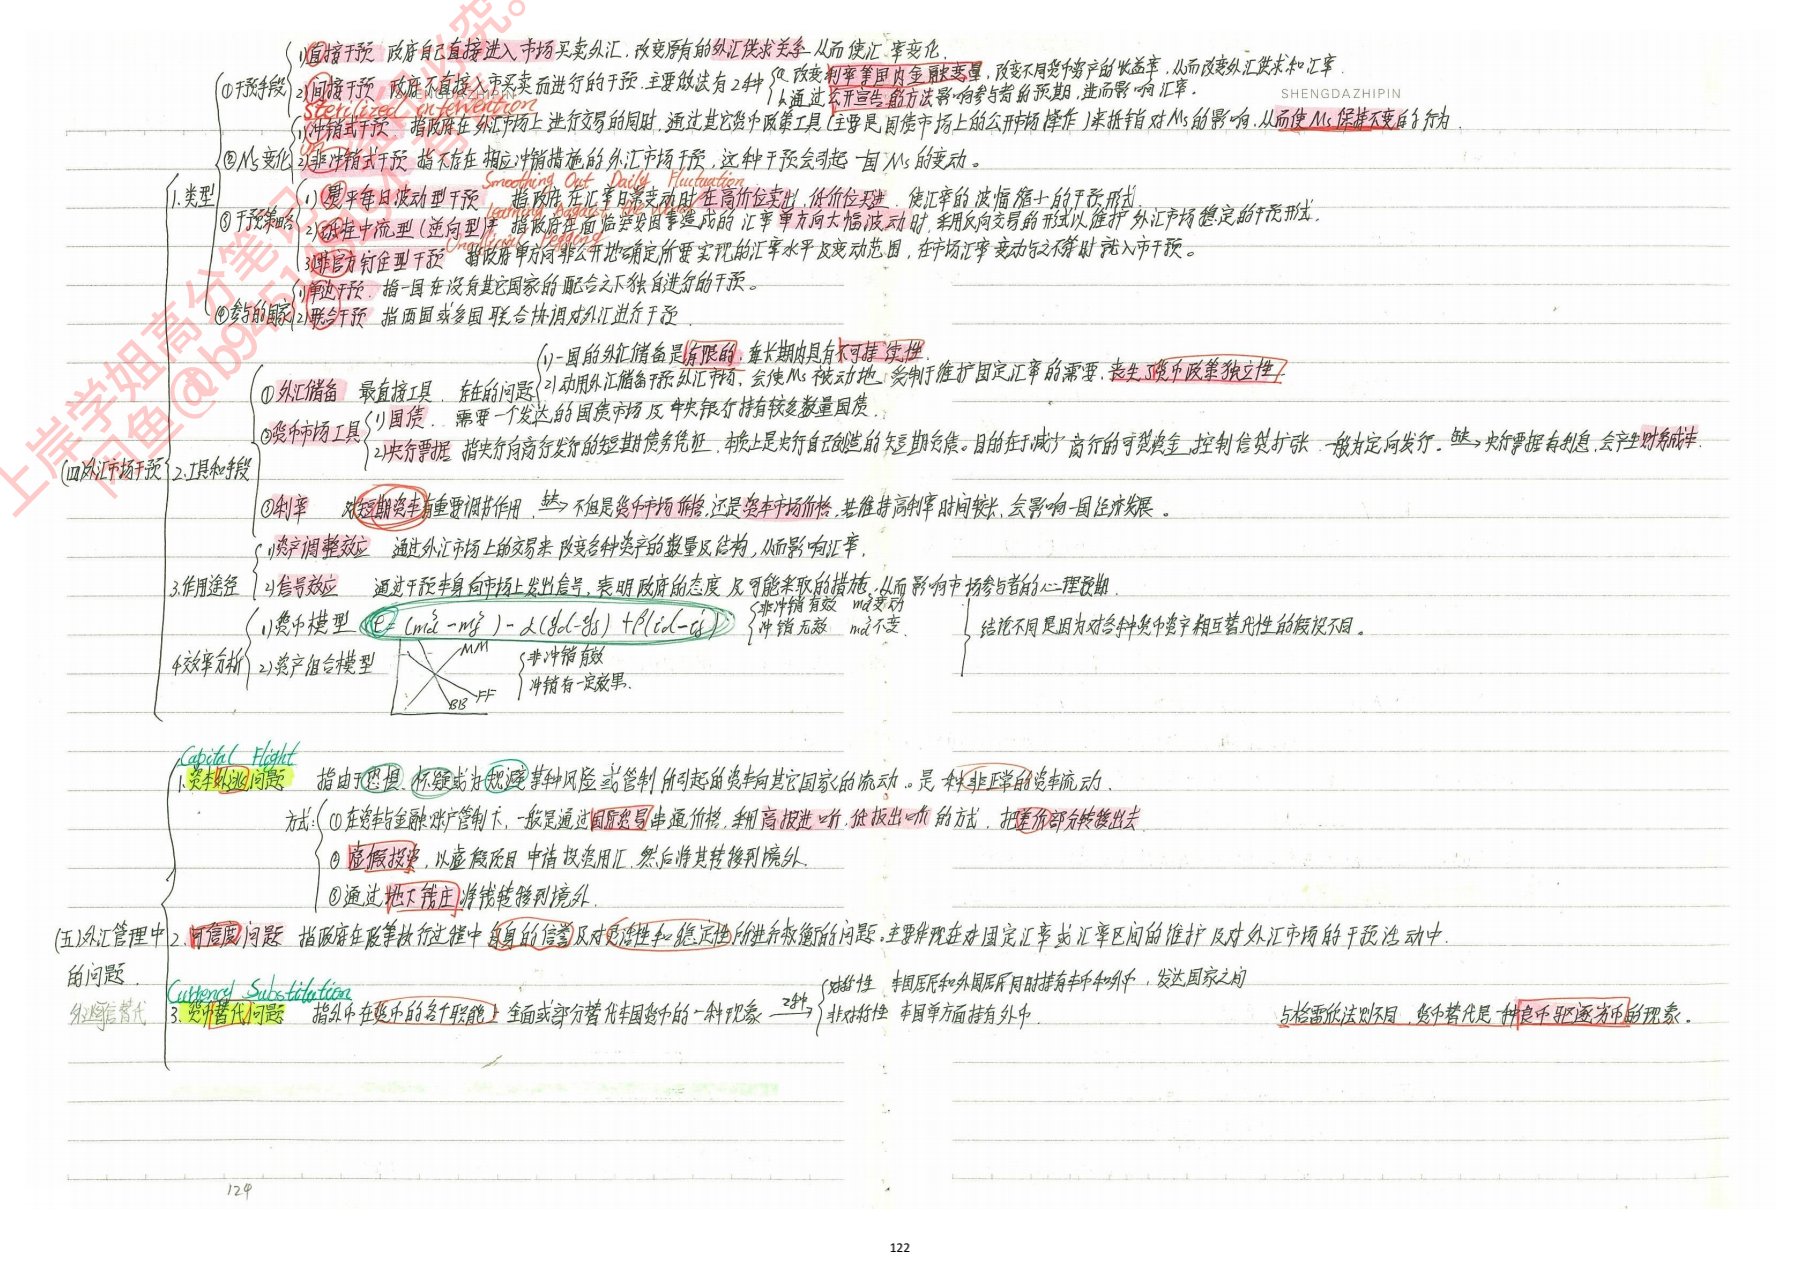 1)直接干预 政府自己直接进入市场买卖外汇,改变原有的外汇供求关系 从而使汇率变化.
①干预手段 2)间接干预 政府不直接入市买卖而进行的干预.主要做法有2种
a.改变利率等国内金融变量,改变不同货币资产的收益率,从而改变外汇供求和汇率.
b.通过公开宣告的方法影响参与者的预期,进而影响汇率.
SHENGDAZHIPIN
Sterilized intervention
1)冲销式干预 指政府在外汇市场上进行交易的同时,通过其它货币政策工具(主要是国债市场上的公开市场操作)来抵销对Ms的影响,从而使Ms保持不变的行为.
②Ms变化 2)非冲销式干预 指不存在相应冲销措施的外汇市场干预,这种干预会引起一国Ms的变动。
Smoothing Out Daily Fluctuation
1.类型
1)熨平每日波动型干预 指政府在汇率日常变动时在高价位卖出,低价位买进,使汇率的波幅缩小的干预形式.
③干预策略 2)砥柱中流型(逆向型) 指政府在面临突发因素造成的汇率单方向大幅波动时,采用反向交易的形式以维护外汇市场稳定的干预形式.
Unofficial Pegging
3)非官方钉住型干预 指政府单方向非公开地确定所要实现的汇率水平及变动范围,在市场汇率变动与之不符时就入市干预。
1)单边干预.指一国在没有其它国家的配合之下独自进行的干预。
④参与的国家 2)联合干预 指两国或多国联合协调对外汇进行干预
1)一国的外汇储备是有限的,在长期内具有不可持续性.
①外汇储备 最直接工具.存在的问题 2)动用外汇储备干预外汇市场,会使Ms被动地受制于维护固定汇率的需要,丧失了货币政策独立性.
②货币市场工具 1)国债.需要一个发达的国债市场及中央银行持有较多数量国债.
2)央行票据 指央行向商行发行的短期债务凭证,本质上是央行自己创造的短期负债。目的在于减少商行的可贷资金,控制信贷扩张.一般为定向发行。缺点→央行票据有利息,会产生财务成本.
(四)外汇市场干预 2.工具和手段
③利率 对短期资本有重要调节作用.缺点→不但是货币市场价格,还是资本市场价格,若维持高利率时间较长,会影响一国经济发展。
1)资产调整效应 通过外汇市场上的交易来改变各种资产的数量及结构,从而影响汇率.
3.作用途径 2)信号效应 通过干预本身向市场上发出信号,表明政府的态度及可能采取的措施,从而影响市场参与者的心理预期.
1)货币模型 e=(md-mf)-α(yd-yf)+β(id-if) 非冲销有效 md变动
冲销无效 md不变.
结论不同是因为对各种货币资产相互替代性的假设不同。
4.效率分析 2)资产组合模型 MM FF BB
非冲销有效
冲销有一定效果.
Capital Flight
1.资本外逃问题 指由于恐惧、怀疑或为规避某种风险或管制所引起的资本向其它国家的流动。是一种非正常的资本流动.
方式:①在资本与金融账户管制下,一般是通过国际贸易串通价格,采用高报进口价,低报出口价的方式,把差价部分转移出去
②虚假投资,以虚假项目申请投资用汇,然后将其转移到境外.
③通过地下钱庄将钱转移到境外.
(五)外汇管理中的问题.
2.可信度问题 指政府在政策执行过程中自身的信誉及对灵活性和稳定性所进行权衡的问题.主要体现在对固定汇率或汇率区间的维护及对外汇市场的干预活动中.
Currency Substitution
对称性 本国居民和外国居民同时持有本币和外币,发达国家之间
外逃可信替代
3.货币替代问题 指外币在货币的各个职能上全面或部分替代本国货币的一种现象 2种→ 非对称性 本国单方面持有外币.
与格雷欣法则不同,货币替代是一种良币驱逐劣币的现象。
124
122
上岸学姐高分笔记
闲鱼@b9451